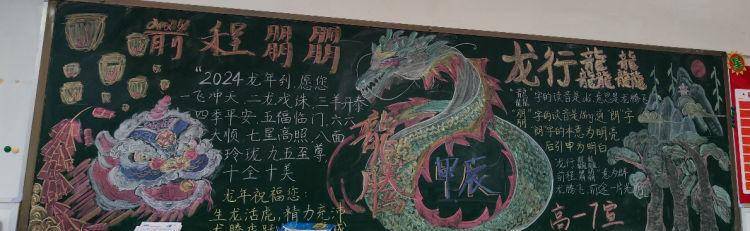 前程朤朤
"2024龙年到,愿您
一飞冲天,二龙戏珠,三羊开泰
四季平安,五福临门,六六
大顺,七星高照,八面
玲珑,九五至尊
十全十美
龙年祝福您:
生龙活虎,精力充沛
龍騰
甲辰
龙行龘龘
"龘"字的读音是dá,意思是龙腾飞
"朤"字的读音是lǎng,通"朗"字
"朗"字的本意为明亮
后引申为明白
龙行龘龘
前程朤朤,意为
龙腾飞,前途一片光
高一7宣